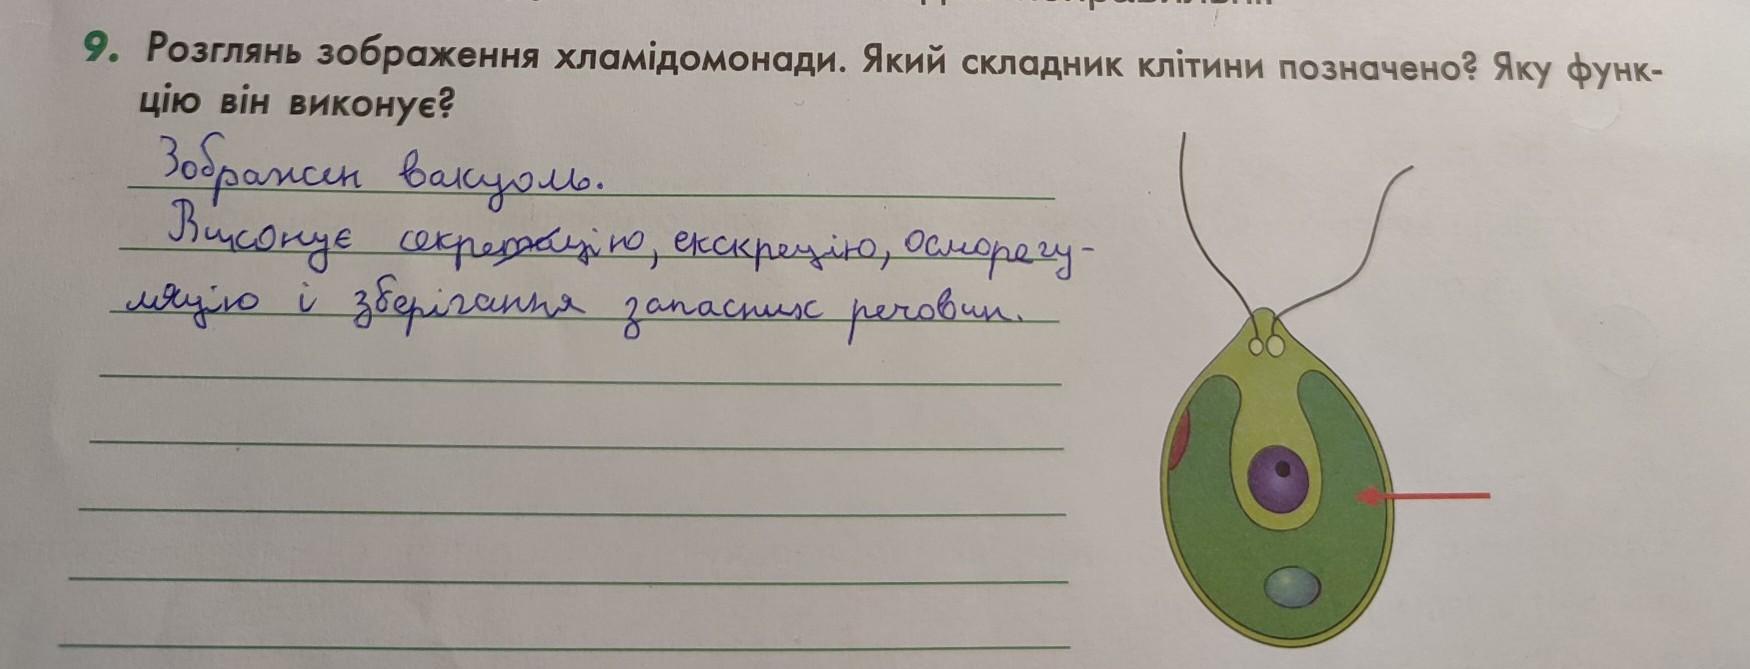 9. Розглянь зображення хламідомонади. Який складник клітини позначено? Яку функ-
цію він виконує?
Зображен вакуоль.
Виконує секрецію, екскрецію, осморегу-
ляцію і зберігання запасних речовин.